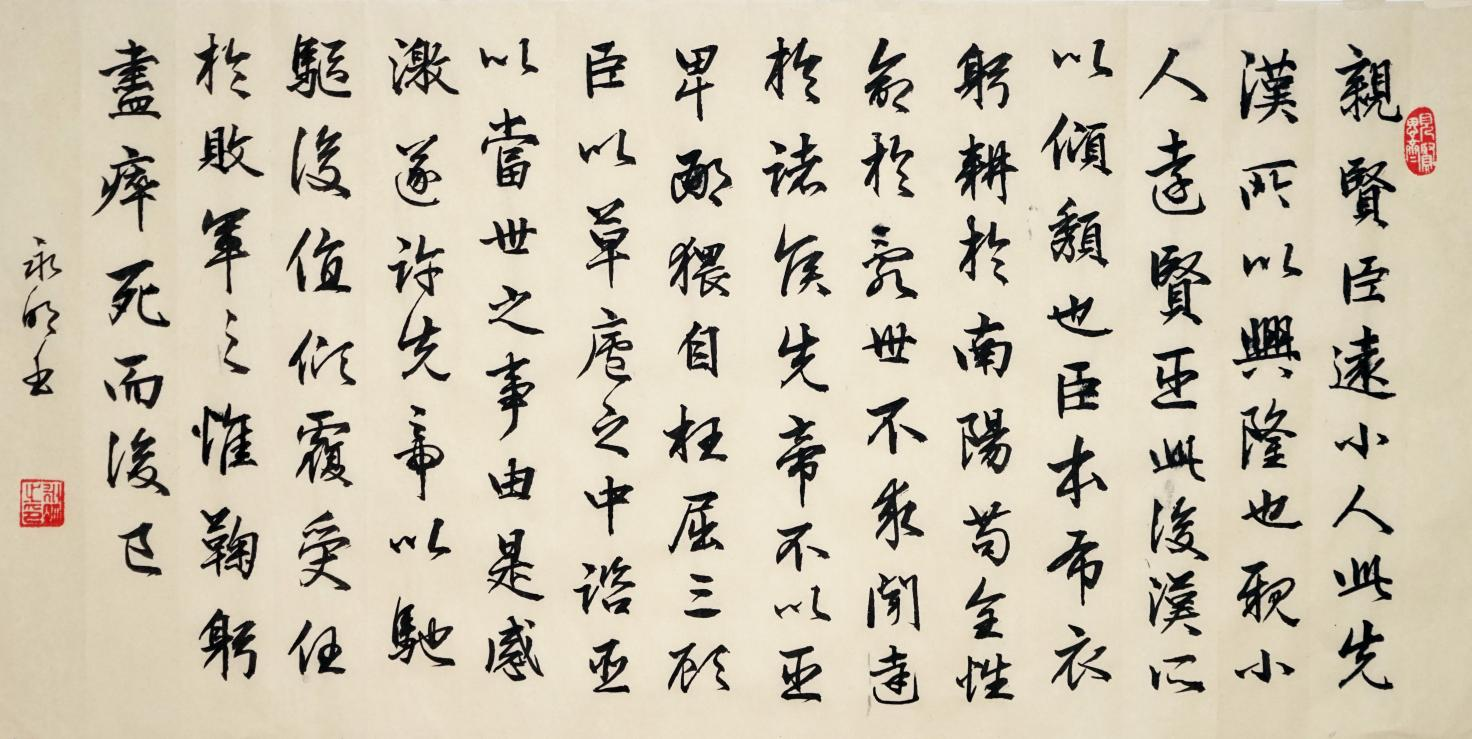 見賢思齊
親賢臣遠小人此先
漢所以興隆也親小
人遠賢臣此後漢所
以傾頹也臣本布衣
躬耕於南陽苟全性
命於亂世不求聞達
於諸侯先帝不以臣
卑鄙猥自枉屈三顧
臣以草廬之中諮臣
以當世之事由是感
激遂許先帝以馳
驅後值傾覆受任
於敗軍之惟鞠躬
盡瘁死而後已
永明書
永明之印